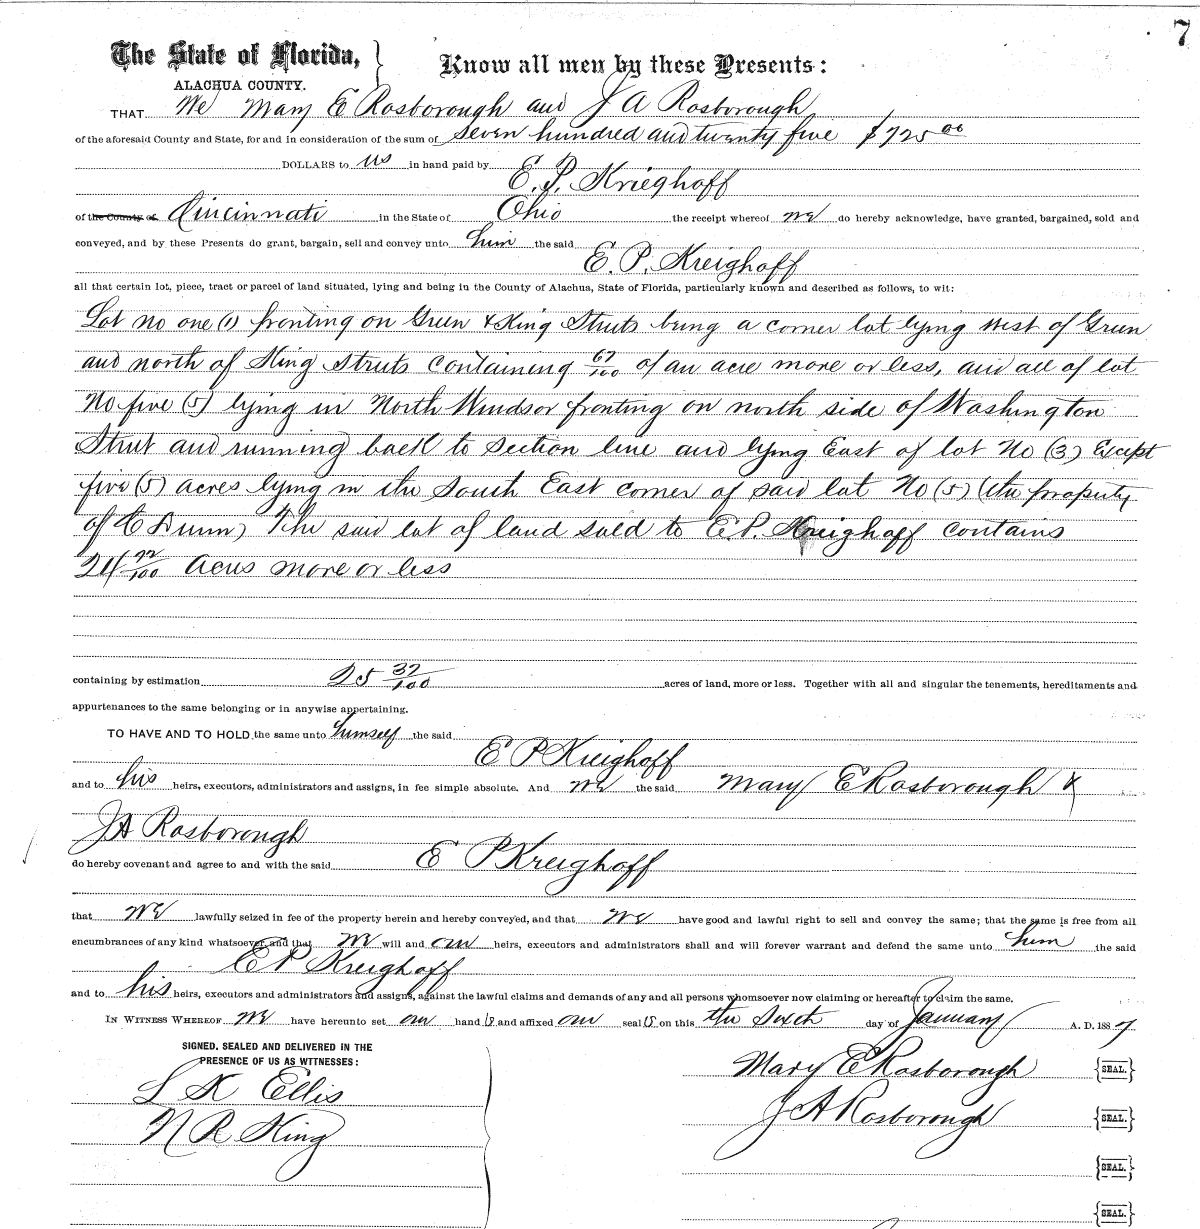 7
The State of Florida, } Know all men by these Presents:
ALACHUA COUNTY.
THAT We Mary E Rosborough and J A Rosborough
of the aforesaid County and State, for and in consideration of the sum of seven hundred and twenty five $725 00
DOLLARS to us in hand paid by
E. P. Krieghoff
of the County of Cincinnati in the State of Ohio the receipt whereof we do hereby acknowledge, have granted, bargained, sold and
conveyed, and by these Presents do grant, bargain, sell and convey unto him the said
E. P. Kreighoff
all that certain lot, piece, tract or parcel of land situated, lying and being in the County of Alachua, State of Florida, particularly known and described as follows, to wit:
Lot no one (1) fronting on Green & King Streets being a corner lot lying west of Green
and north of King Streets containing 67/100 of an acre more or less, and all of lot
No five (5) lying in North Windsor fronting on north side of Washington
Street and running back to section line and lying East of lot No (3) Except
five (5) acres lying in the South East corner of said lot No (5) (the property
of C Dunn) The said lot of land sold to E. P. Kreighoff contains
24 72/100 acres more or less
containing by estimation 25 37/100 acres of land, more or less. Together with all and singular the tenements, hereditaments and
appurtenances to the same belonging or in anywise appertaining.
TO HAVE AND TO HOLD the same unto himself the said
E P Kreighoff
and to his heirs, executors, administrators and assigns, in fee simple absolute. And we the said Mary E Rosborough &
J A Rosborough
do hereby covenant and agree to and with the said E P Kreighoff
that we lawfully seized in fee of the property herein and hereby conveyed, and that we have good and lawful right to sell and convey the same; that the same is free from all
encumbrances of any kind whatsoever, and that we will and our heirs, executors and administrators shall and will forever warrant and defend the same unto him the said
E P Kreighoff
and to his heirs, executors and administrators and assigns, against the lawful claims and demands of any and all persons whomsoever now claiming or hereafter to claim the same.
IN WITNESS WHEREOF we have hereunto set our hands and affixed our seals on this the sixth day of January A. D. 1887
SIGNED, SEALED AND DELIVERED IN THE
PRESENCE OF US AS WITNESSES:
Mary E Rosborough {SEAL.}
L K Ellis
J A Rosborough {SEAL.}
N R King
{SEAL.}
{SEAL.}